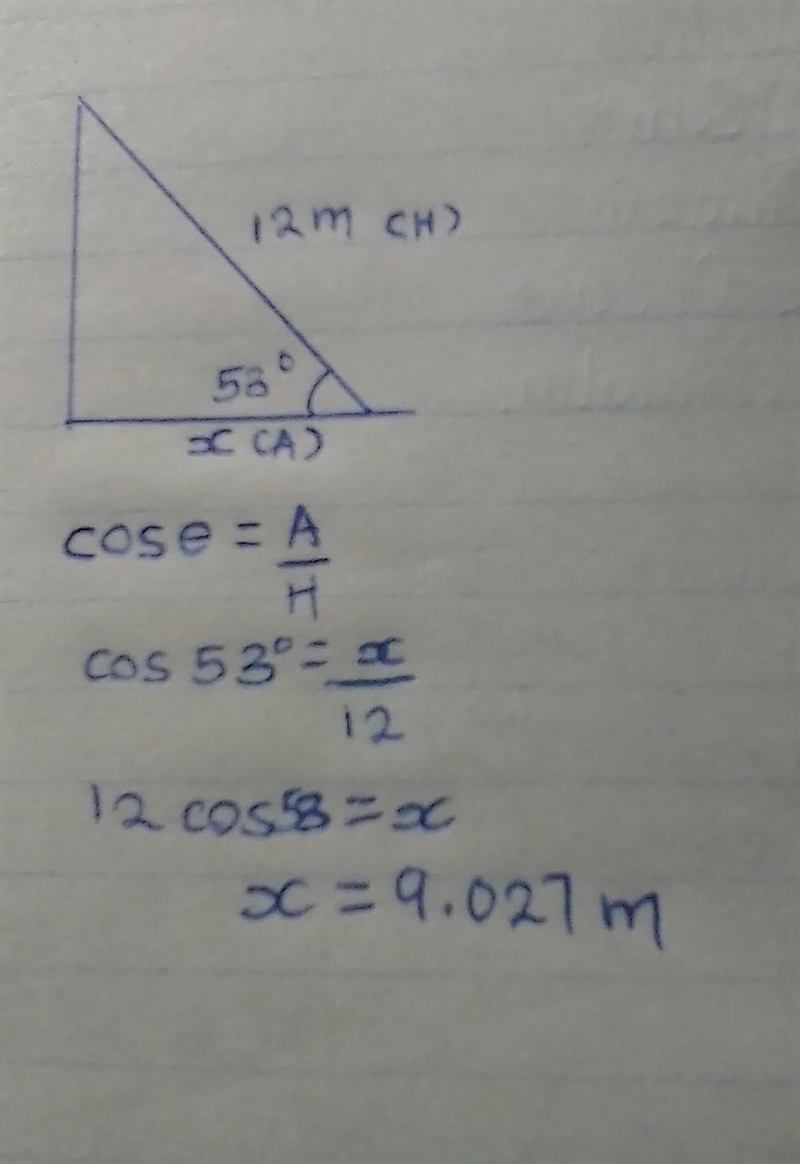 12m (H)
53°
x (A)
cosθ = A/H
cos 53° = x/12
12 cos53 = x
x = 9.027 m